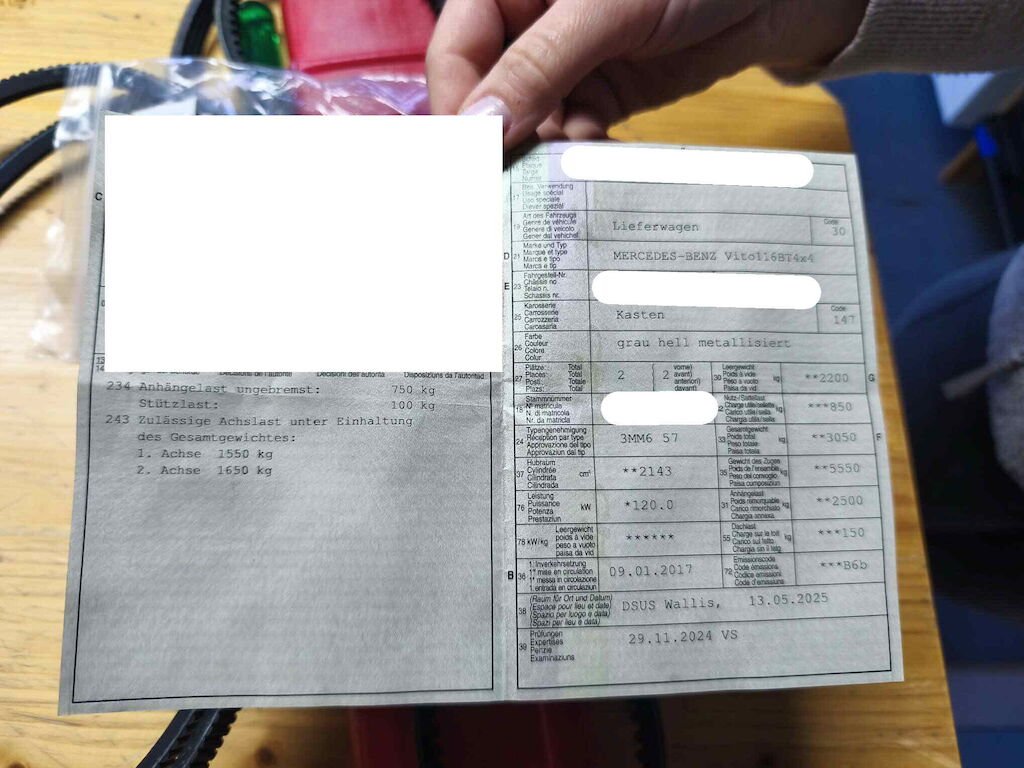 C
Decisiuns da l'autorità
Décisions de l'autorité
Decisioni dell'autorità
Disposiziuns da l'autoritad
234 Anhängelast ungebremst: 750 kg
Stützlast: 100 kg
243 Zulässige Achslast unter Einhaltung
des Gesamtgewichtes:
1. Achse 1550 kg
2. Achse 1650 kg
Schild
Plaque
Targa
Numer
17 Bes. Verwendung
Usage spécial
Uso speciale
Diever spezial
19 Art des Fahrzeugs
Genre de véhicule
Genere di veicolo
Gener dal vehichel
Lieferwagen
Code
30
D 21 Marke und Typ
Marque et type
Marca e tipo
Marca e tip
MERCEDES-BENZ Vito116BT4x4
E 23 Fahrgestell-Nr.
Châssis no
Telaio n.
Schassis nr.
25 Karosserie
Carrosserie
Carrozzeria
Carossaria
Kasten
Code
147
26 Farbe
Couleur
Colore
Colur
grau hell metallisiert
27 Plätze: Total
Places: Total
Posti: Totale
Plazs: Total
2
2
vorne)
avant)
anteriori)
davant)
30 Leergewicht
Poids à vide
Peso a vuoto
Paisa da vid
kg
**2200
G
18 Stammnummer
N° matricule
N. di matricola
Nr. da matricla
Nutz-/Sattellast
Charge utile/sellette
Carico utile/sella
Chargia utila/sella
kg
***850
24 Typengenehmigung
Réception par type
Approvazione del tipo
Approvaziun dal tip
3MM6 57
33 Gesamtgewicht
Poids total
Peso totale
Paisa totala
kg
**3050
F
37 Hubraum
Cylindrée
Cilindrata
Cilindrada
cm³
**2143
35 Gewicht des Zuges
Poids de l'ensemble
Peso del convoglio
Paisa cumposiziun
kg
**5550
76 Leistung
Puissance
Potenza
Prestaziun
kW
*120.0
31 Anhängelast
Poids remorquable
Carico rimorchiato
Chargia annexa
kg
**2500
78 kW/kg
Leergewicht
poids à vide
peso a vuoto
paisa da vid
******
55 Dachlast
Charge sur le toit
Carico sul tetto
Chargia sin il tetg
kg
***150
B 36 1. Inverkehrsetzung
1re mise en circulation
1a messa in circolazione
1. entrada en circulaziun
09.01.2017
72 Emissionscode
Code émissions
Codice emissioni
Code d'emissiuns
***B6b
38 (Raum für Ort und Datum)
(Espace pour lieu et date)
(Spazio per luogo e data)
(Spazi per lieu e data)
DSUS Wallis, 13.05.2025
39 Prüfungen
Expertises
Perizie
Examinaziuns
29.11.2024 VS